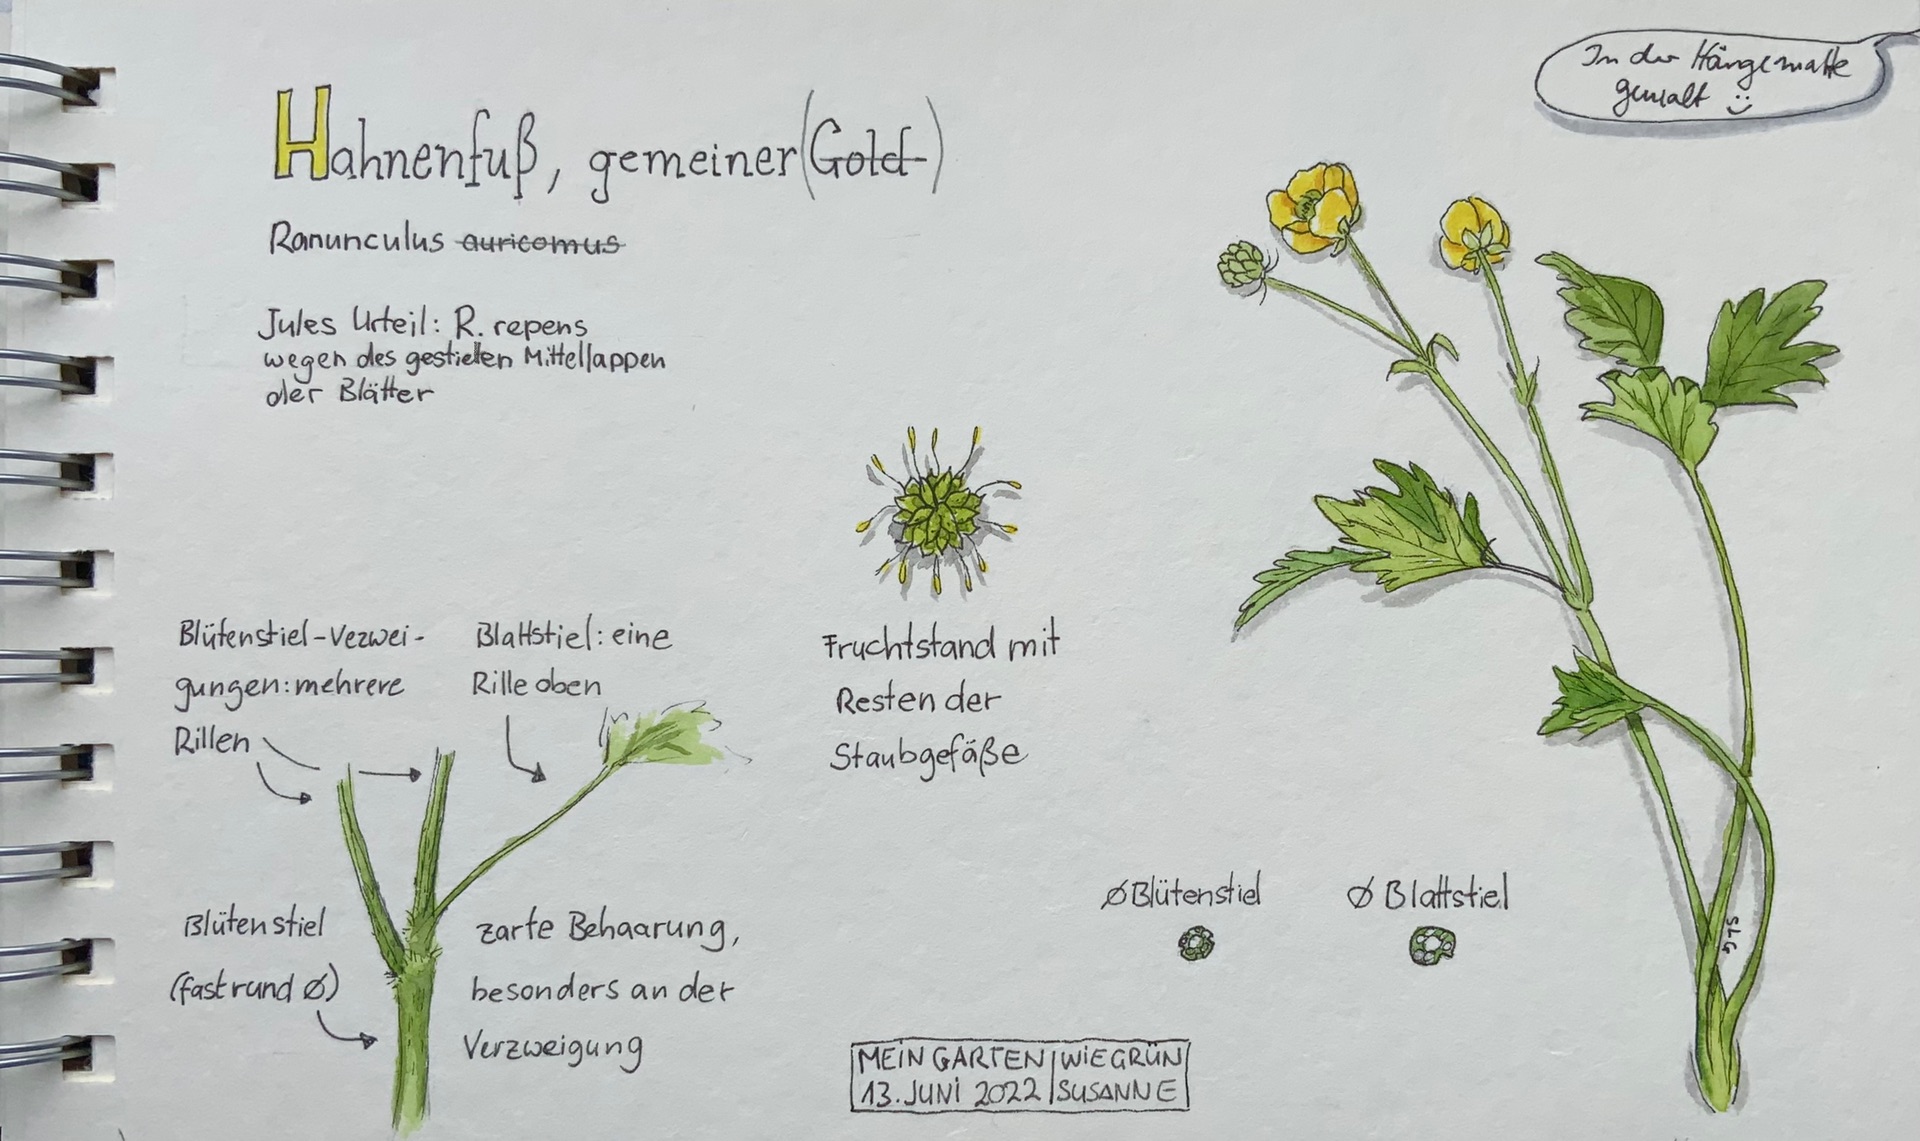 In der Hängematte
gemalt
Hahnenfuß, gemeiner (Gold-)
Ranunculus auricomus
Jules Urteil: R. repens
wegen des gestielten Mittellappen
der Blätter
Blütenstiel-Vezwei-
gungen: mehrere
Rillen
Blattstiel: eine
Rille oben
Fruchtstand mit
Resten der
Staubgefäße
Blütenstiel
(fast rund Ø)
zarte Behaarung,
besonders an der
Verzweigung
Ø Blütenstiel
Ø Blattstiel
SLG
MEIN GARTEN | WIEGRÜN
13. JUNI 2022 | SUSANNE